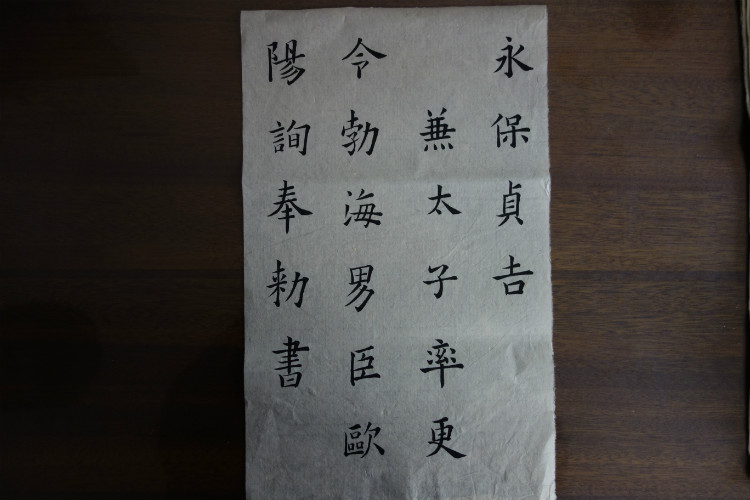 永保貞吉
兼太子率更
令勃海男臣歐
陽詢奉勑書